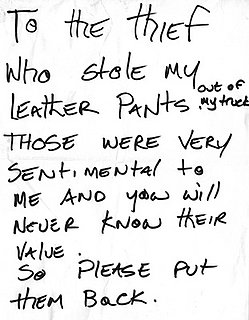 To the thief
Who stole my
out of
LEATHER PANTS . my truck
THOSE WERE VERY
SENTIMENTAL to
ME AND you will
NEVER KNOW THEIR
VALUE .
SO PLEASE PUT
tHEM BACK.